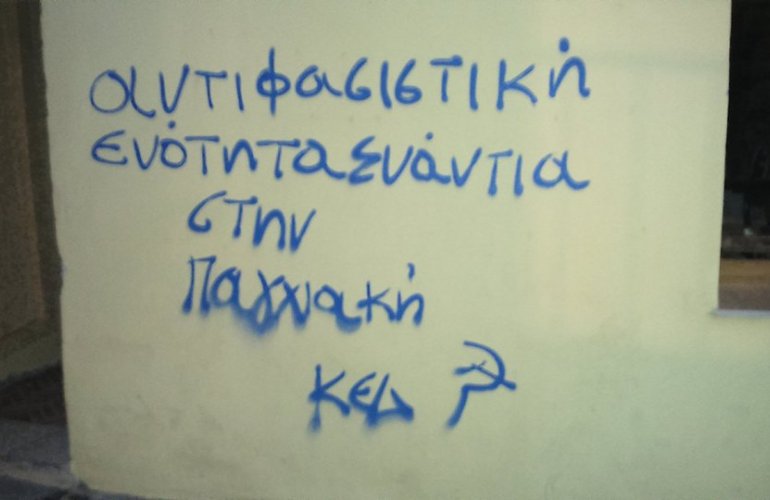 αντιφασιστική
ενότητα ενάντια
στην
ΚΕΔ